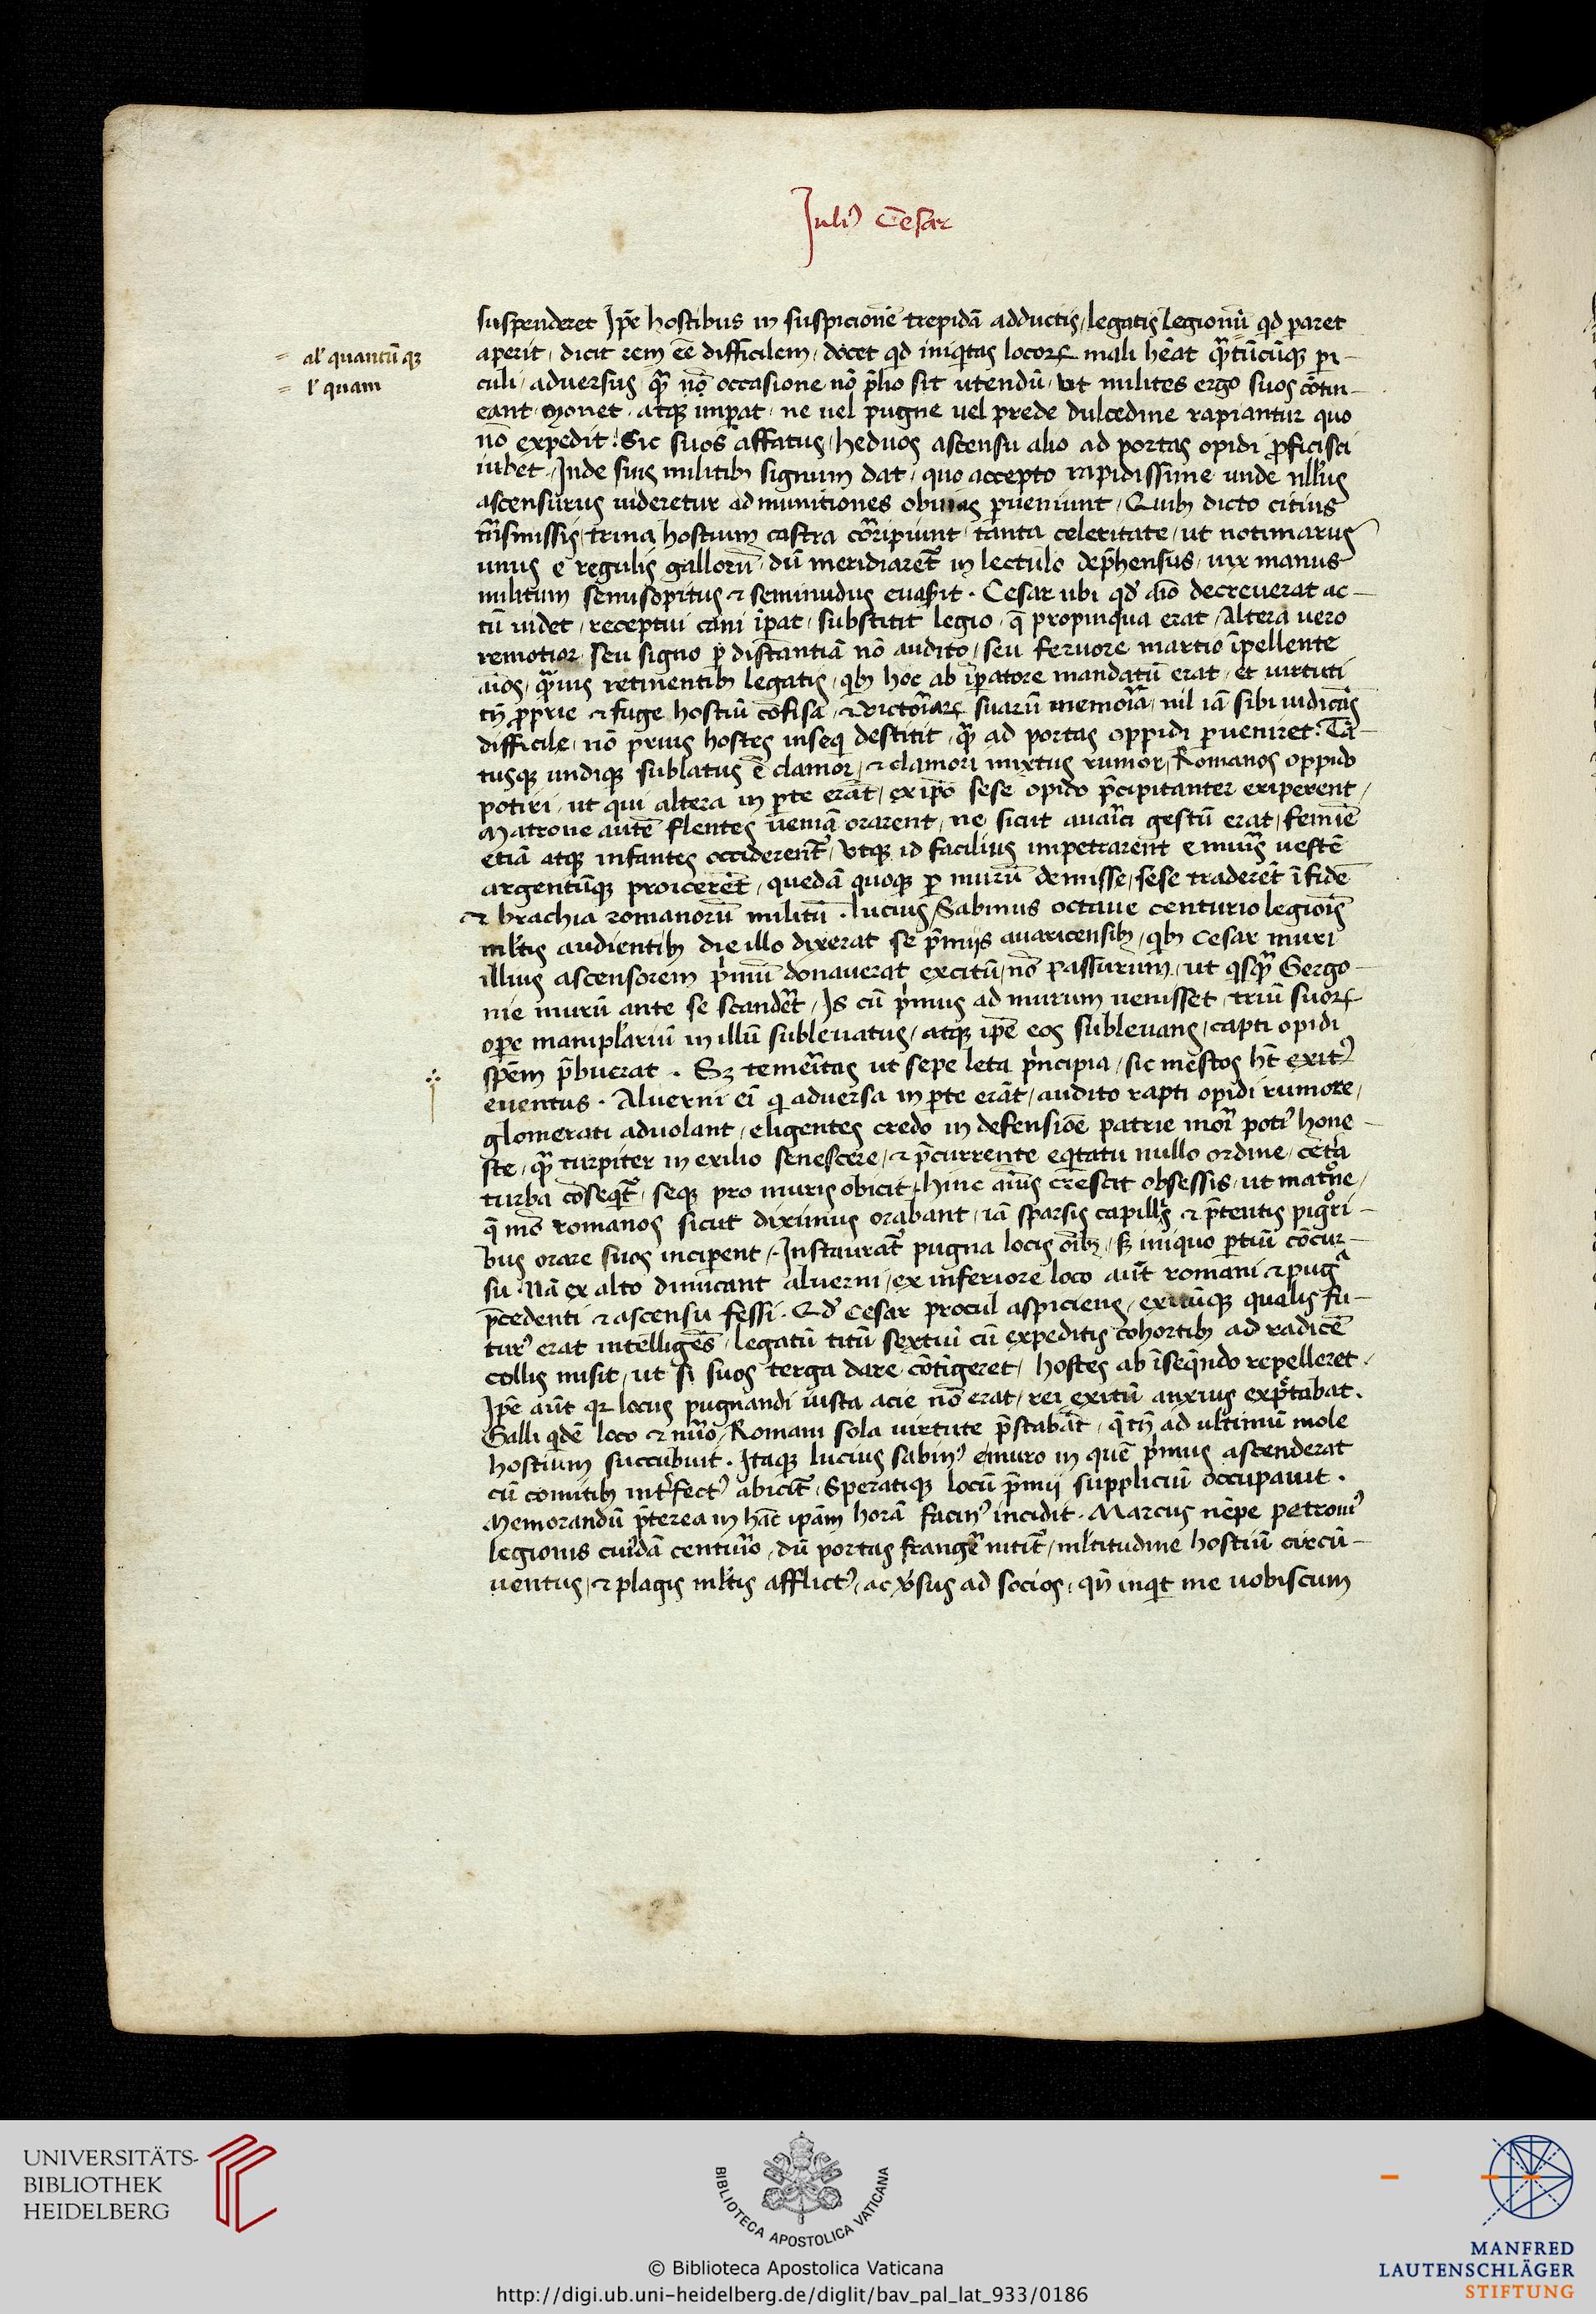 Juliꝰ Cesar
suspenderet Ip̄e hostibus in suspicionē trepidā adductis, legatis legionū qd paret
= al' quantū qꝫ
aperit, dicit rem eē difficilem, docet qd iniqitas locoꝝ mali hēat qͣtūcūqꝫ pi-
= l' quam
culi, adversus, qͣ nō occasione nō p̄lio sit utendū, ut milites ergo suos cōtin-
eant monet, atqꝫ imꝑat, ne vel pugne vel prede dulcedine rapiantur quo
nō expedit. Sic suos affatus, heduos ascensu alio ad portas opidi ꝓficisci
iubet, Inde suis militibꝫ signum dat, quo accepto rapidissime unde nll'us
ascensurus videretur ad munitiones obvias ꝑveniunt, Quibꝫ dicto citius
tn̄smissis, trina hostium castra corripiunt, tanta celeritate, ut notimarus
unus e regulis gallorū, dū meridiaret̄ in lectulo dep̄hensus, vix manus
militum semisopitus ⁊ seminudus evasit. Cesar ubi qd aīo decreverat ac-
tū videt, receptui cani īꝑat, substitit legio, q̄ propinqua erat, Altera vero
remotior, seu signo ꝑ distantiā nō audito, seu fervore martio īpellente
aīos, qͣvis retinentibꝫ legatis, qibꝫ hoc ab īꝑatore mandatū erat, et virtuti
tn̄ ꝓprie ⁊ fuge hostiū cōfisa, ⁊ victoriaꝝ suarū memoria, nil iā sibi iudicās
difficile, nō prius hostes inseqi destitit, qͣ ad portas oppidi ꝑveniret. Tā-
tusqꝫ undiqꝫ sublatus ē clamor, ⁊ clamori mixtus rumor, Romanos oppido
potiri, ut qui altera in ꝑte erāt, ex ip̄o sese opido p̄cipitanter eriperent,
Matrone autē flentes veniā orarent, ne sicut avarici gestū erat, femīe
etiā atqꝫ infantes occiderent̄, Utqꝫ id facilius impetrarent e muris vestē
argentūqꝫ proicerēt, quedā quoqꝫ ꝑ murū demisse, sese traderēt ī fidē
⁊ brachia romanorū militū. lucius Sabinus octave centurio legiois
ml'tis audientibꝫ die illo dixerat se p̄miis avaricensibꝫ, qibꝫ Cesar muri
illius ascensorem primū donaverat excitū, nō passurum, ut qisqͣ Gergo-
nie murū ante se scanderet, Is cū primus ad murum venisset, triū suoꝝ
oꝑe manipl'ariū in illū sublevatus, atqꝫ ip̄e eos sublevans, capti opidi
spem p̄buerat. Sꝫ temeritas ut sepe leta principia, sic mestos ht̄ exitꝰ
eventus. Alverni ei qi adversa in ꝑte erāt, audito rapti opidi rumore,
glomerati advolant, eligentes credo in defensiōe patrie mori potiꝰ hone-
ste, qͣ turpiter in exilio senescere, ⁊ p̄currente eqitatu nullo ordine, cetera
turba cōseqit̄, seqꝫ pro muris obicit, hinc aīus crescit obsessis, ut matrone,
q̄ mō romanos sicut diximus orabant, iā sparsis capillis ⁊ p̄tentis pignori-
bus orare suos inciꝑent, Instaurat̄ pugna locis oībꝫ, sꝫ iniquo ꝑtiū cōcur-
su. Nā ex alto dimicant alverni, ex inferiore loco aūt romani ⁊ pugͣ
p̄cedenti ⁊ ascensu fessi. Qd Cesar procul aspiciens, exitūqꝫ qualis fu-
turꝰ erat intelligēs, legatū titū sextiū cū expeditis cohortibꝫ ad radicē
collis misit, ut si suos terga dare cōtigeret, hostes ab īseqēndo repelleret.
Ip̄e aūt qr locus pugnandi iusta acie nō erat, rei exitū anxius expectabat.
Galli qidē loco ⁊ nūo, Romani sola virtute p̄stabāt, q̄ tn̄ ad ultimū mole
hostium succubuit. Itaqꝫ lucius sabinꝰ e muro in quē primus ascenderat
cū comitibꝫ int'fectꝰ abicit̄, Speratiqꝫ locū p̄mii suppliciū occupavit.
Memorandū p̄terea in hāc ipām horā facinꝰ incidit. Marcus nēpe petroniꝰ
legionis cuiusdā centurio, dū portas frangere nitit̄, ml'titudine hostiū circū-
ventus, ⁊ plagis ml'tis afflictꝰ, ac ѷsus ad socios, qn̄ inqit me vobiscum
UNIVERSITÄTS-
BIBLIOTHEK
HEIDELBERG
BIBLIOTECA APOSTOLICA VATICANA
© Biblioteca Apostolica Vaticana
http://digi.ub.uni-heidelberg.de/diglit/bav_pal_lat_933/0186
MANFRED
LAUTENSCHLÄGER
STIFTUNG